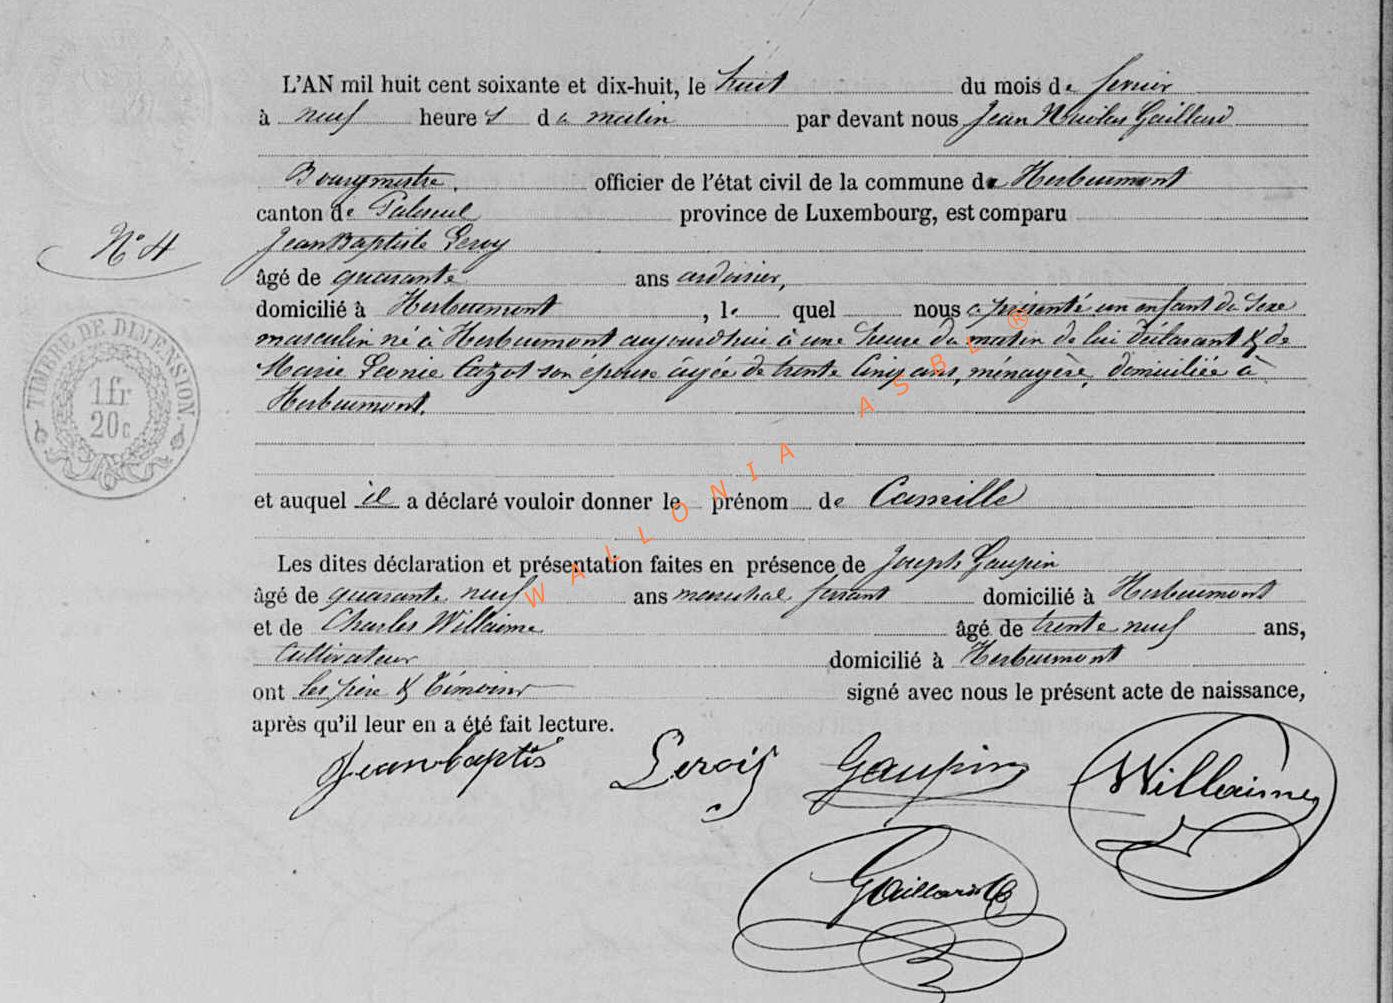 L'AN mil huit cent soixante et dix-huit, le huit du mois de février
à neuf heures du matin par devant nous Jean Nicolas Gaillard
Bourgmestre. officier de l'état civil de la commune de Herbeumont
canton de Paliseul province de Luxembourg, est comparu
N° 4
Jean Baptiste Leroy
âgé de quarante ans ardoisier,
domicilié à Herbeumont, lequel nous a présenté un enfant du sexe
masculin né à Herbeumont aujourd'hui à une heure du matin de lui déclarant & de
Marie Léonie Cazot son épouse âgée de trente cinq ans, ménagère, domiciliée à
Herbeumont.
TIMBRE DE DIMENSION
1 fr
20 c
et auquel il a déclaré vouloir donner le prénom de Camille
Les dites déclaration et présentation faites en présence de Joseph Gaupin
âgé de quarante neuf ans maréchal ferrant domicilié à Herbeumont
et de Charles Willaime âgé de trente neuf ans,
Cultivateur domicilié à Herbeumont
ont les père & témoins signé avec nous le présent acte de naissance,
après qu'il leur en a été fait lecture.
Jeanbaptis Leroiy Gaupin Willaime
Gaillard
WALLONIA ASBL ®